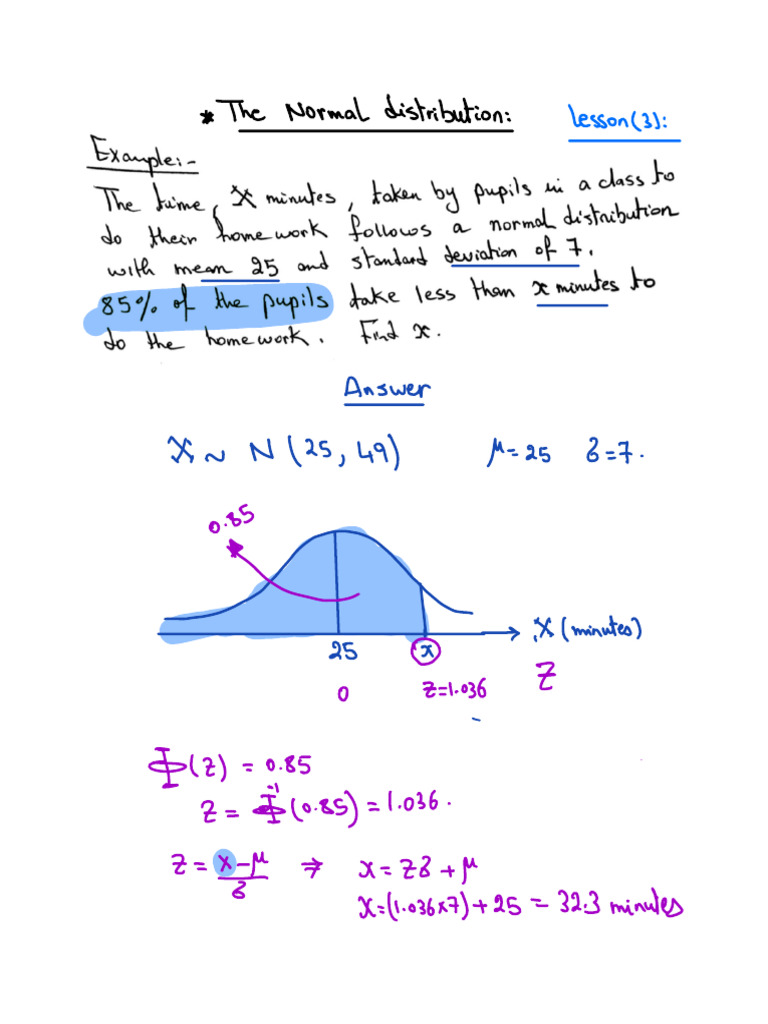 * The Normal distribution: lesson(3):
Example:-
The time, X minutes, taken by pupils in a class to
do their homework follows a normal distribution
with mean 25 and standard deviation of 7.
85% of the pupils take less than x minutes to
do the homework. Find x.
Answer
X ~ N (25, 49) μ = 25 σ = 7.
0.85
X (minutes)
25 x
0 z=1.036 Z
Φ(z) = 0.85
z = Φ⁻¹(0.85) = 1.036.
z = (x-μ)/σ ⇒ x = zσ + μ
x = (1.036×7) + 25 = 32.3 minutes